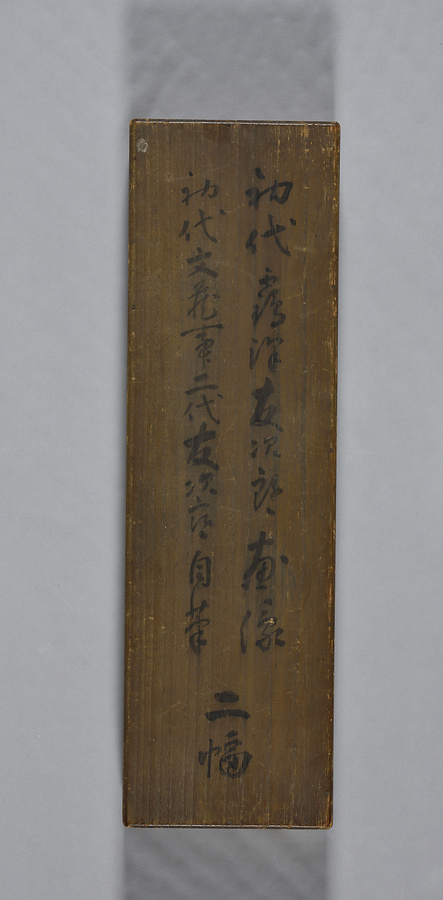 初代 鶴澤友次郎 画像
初代文蔵事二代友次郎自筆
二幅